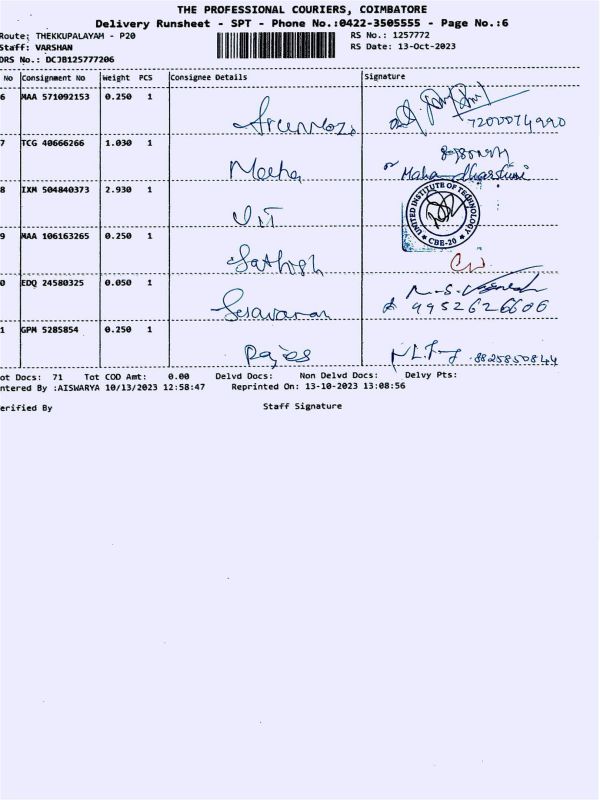 THE PROFESSIONAL COURIERS, COIMBATORE
Delivery Runsheet - SPT - Phone No.:0422-3505555 - Page No.:6
Route: THEKKUPALAYAM - P20 RS No.: 1257772
Staff: VARSHAN RS Date: 13-Oct-2023
DRS No.: DCJB125777206
No Consignment No Weight PCS Consignee Details Signature
6 MAA 571092153 0.250 1
7200074990
7 TCG 40666266 1.030 1 Meeha
Maha dharshini
8 IXM 504840373 2.930 1 UIT
UNITED INSTITUTE OF TECHNOLOGY
CBE-20
9 MAA 106163265 0.250 1 Sathish
0 EDQ 24580325 0.050 1 Saravanan
9952626606
1 GPM 5285854 0.250 1 Rajes
8825850844
ot Docs: 71 Tot COD Amt: 0.00 Delvd Docs: Non Delvd Docs: Delvy Pts:
ntered By :AISWARYA 10/13/2023 12:58:47 Reprinted On: 13-10-2023 13:08:56
erified By Staff Signature